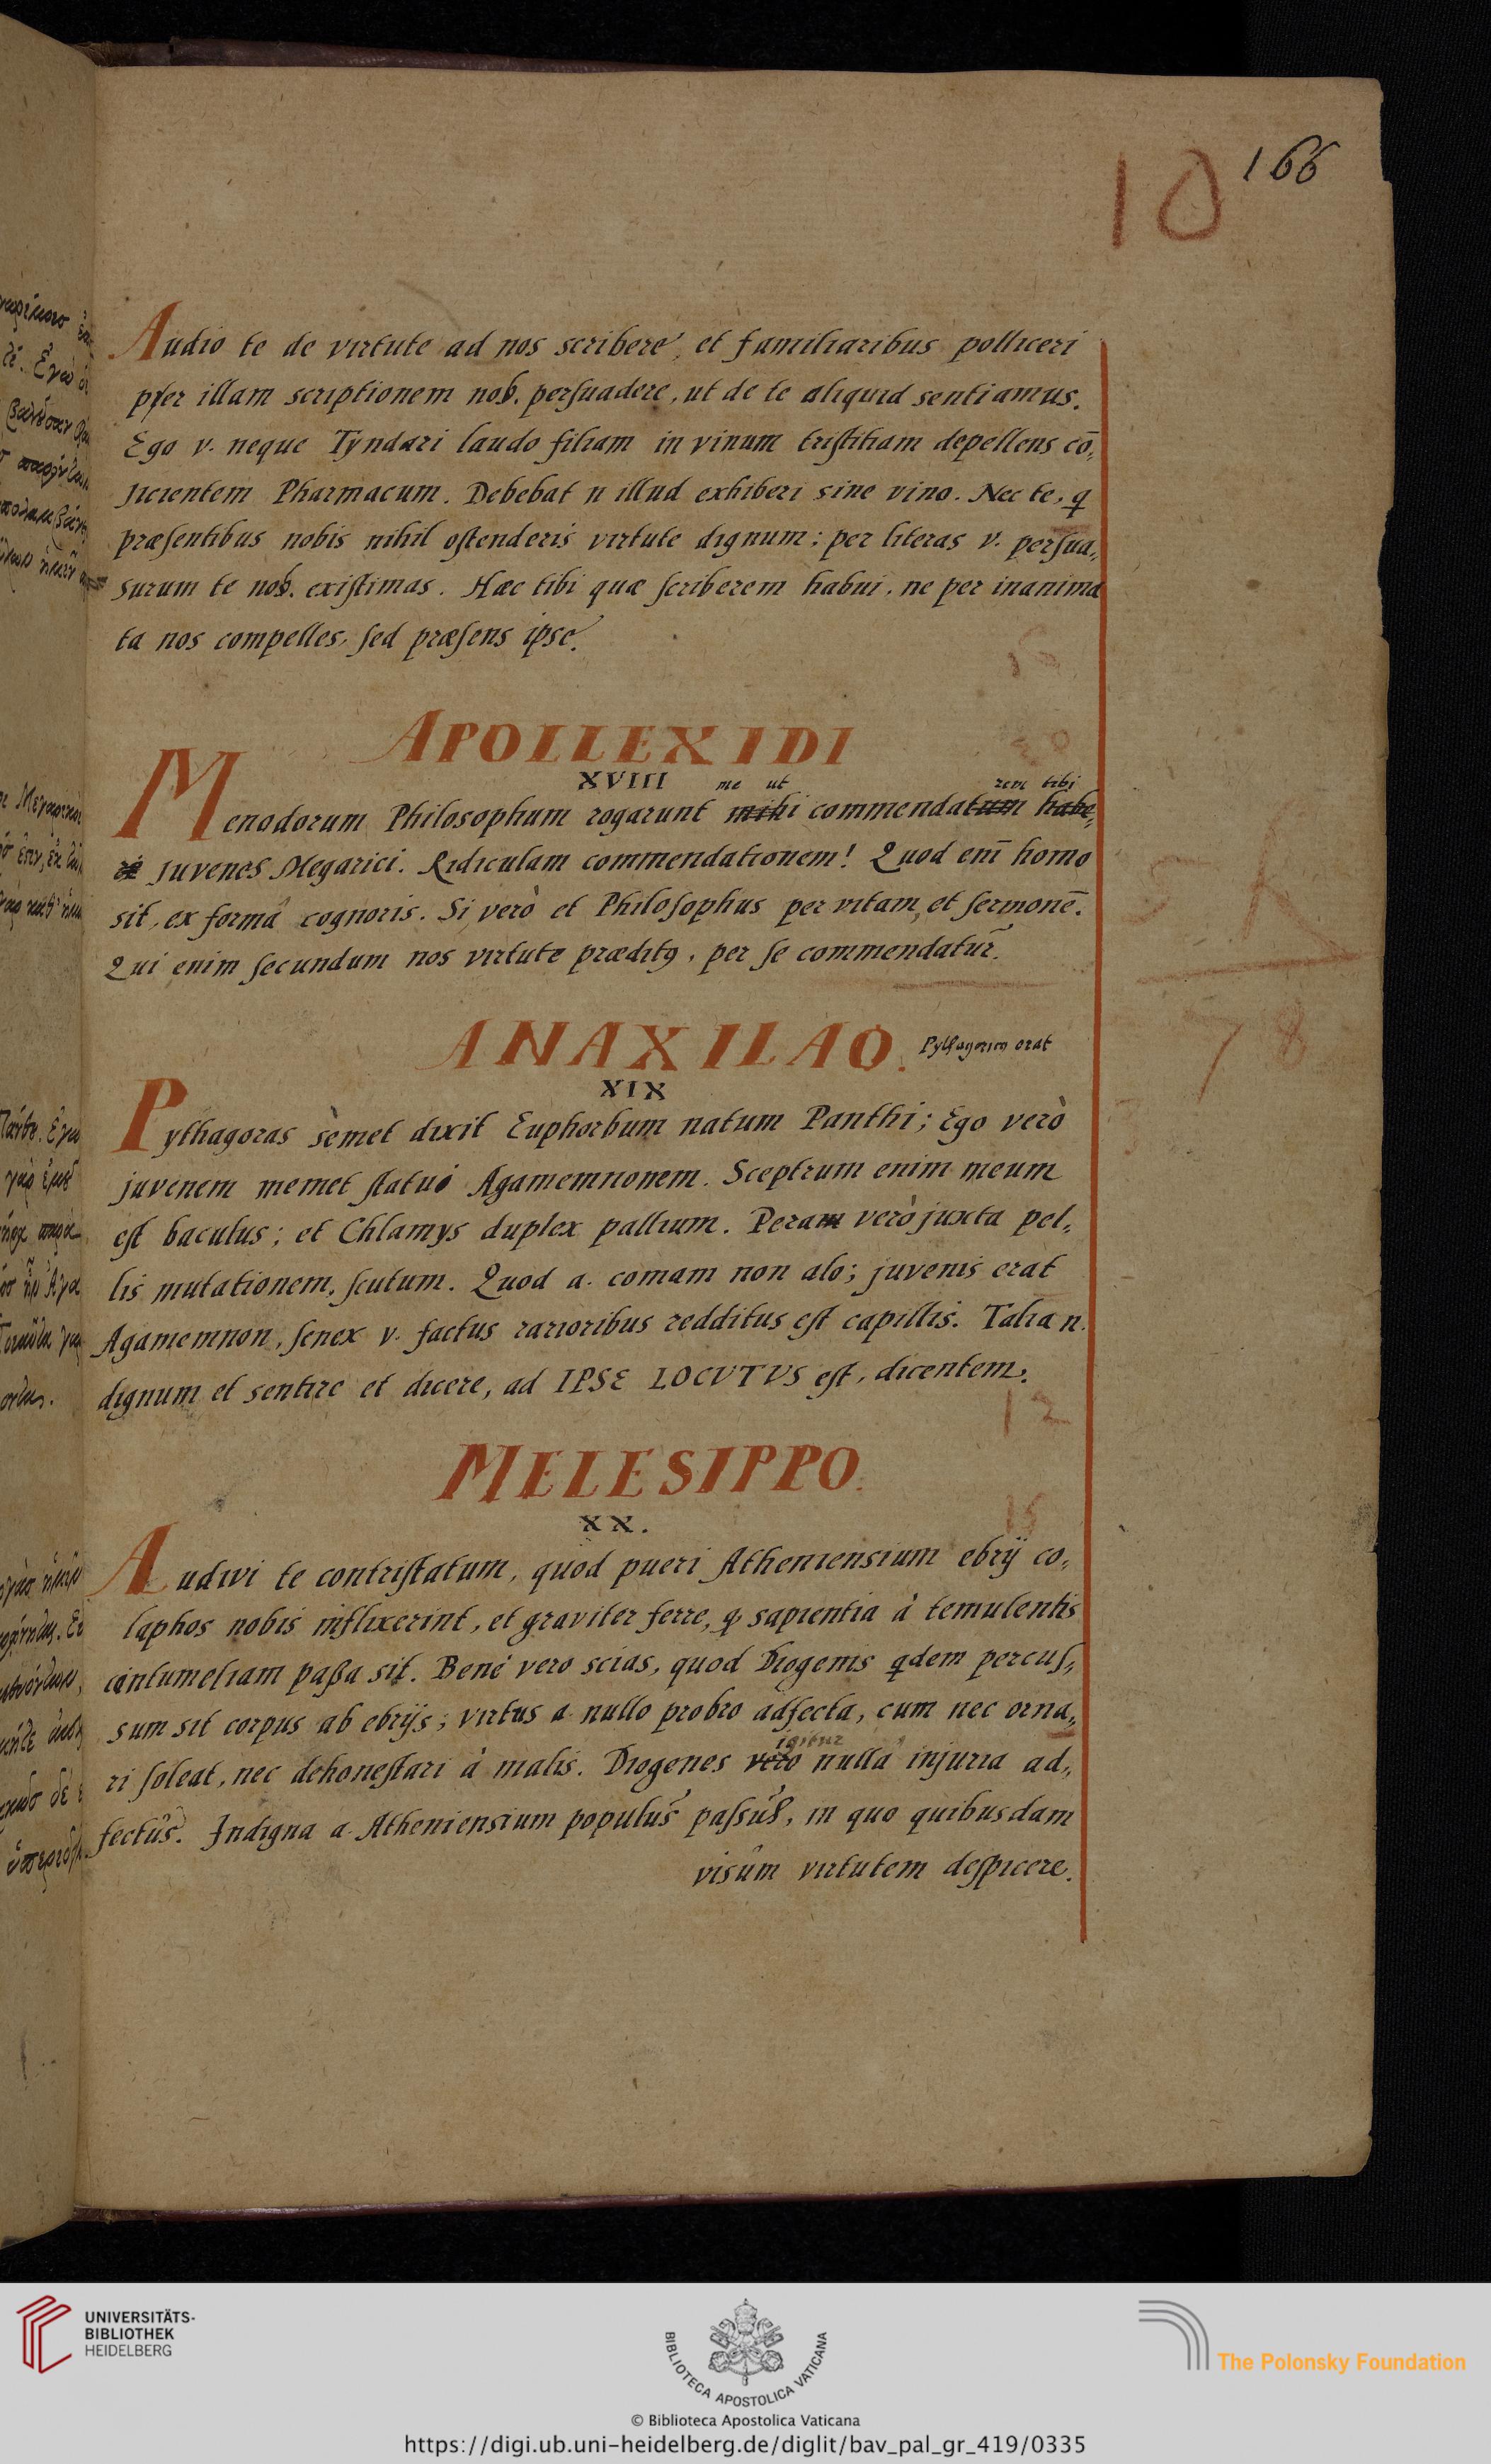 10 166
Audio te de virtute ad nos scribere, et familiaribus polliceri
per illam scriptionem nob. persuadere, ut de te aliquid sentiamus.
Ego v. neque Tyndari laudo filiam in vinum tristitiam depellens cō,
jicientem Pharmacum. Debebat n illud exhiberi sine vino. Nec te, q
præsentibus nobis nihil ostenderis virtute dignum: per literas v. persua,,
surum te nob. existimas. Hæc tibi quæ scriberem habui. ne per inanima
ta nos compelles, sed præsens ipse.
APOLLEXIDI
XVIII me ut rem tibi
Menodorum Philosophum rogarunt mihi commendatum habe,
re juvenes Megarici. Ridiculam commendationem! Quod enī homo
sit, ex formâ cognoris. Si verò et Philosophus per vitam, et sermonē.
Qui enim secundum nos virtute præditꝯ, per se commendatur.
ANAXILAO. Pythagoricꝯ erat
XIX
Pythagoras sèmet dixit Euphorbum natum Panthi; Ego verò
juvenem memet statui Agamemnonem. Sceptrum enim meum
est baculus; et Chlamys duplex pallium. Peram verò juxta pel,,
lis mutationem, scutum. Quod a. comam non alo; juvenis erat
Agamemnon, senex v. factus rarioribus redditus est capillis. Talia n.
dignum et sentire et dicere, ad IPSE LOCVTVS est, dicentem.
12
MELESIPPO.
15
XX.
Audivi te contristatum, quod pueri Atheniensium ebrij co,
laphos nobis inflixerint, et graviter ferre, q sapientia à temulentis
contumeliam paßa sit. Benè vero scias, quod Diogenis qdem percus,,
sum sit corpus ab ebrijs; virtus a nullo probro adfecta, cum nec orna,,
igitur
ri soleat, nec dehonestari à malis. Diogenes vero nulla injuria ad,,
fectus. Indigna a. Atheniensium populus passus, in quo quibusdam
visum virtutem despicere.
78
UNIVERSITÄTS-
BIBLIOTHEK
HEIDELBERG
BIBLIOTECA APOSTOLICA VATICANA
The Polonsky Foundation
© Biblioteca Apostolica Vaticana
https://digi.ub.uni-heidelberg.de/diglit/bav_pal_gr_419/0335